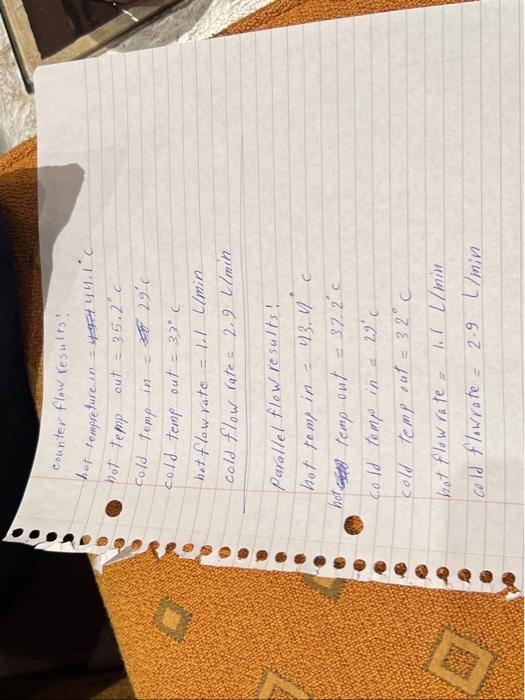 counter flow results!
hot tempreture in = 44.1°c
hot temp out = 35.2°c
cold temp in = 29°c
cold temp out = 33°c
hot flow rate = 1.1 L/min
cold flow rate = 2.9 L/min
Parallel flow results!
hot temp in = 43.4° c
hot temp out = 37.2°c
cold temp in = 29°c
cold temp out = 32° c
hot flowrate = 1.1 L/min
cold flowrate = 2.9 L/min